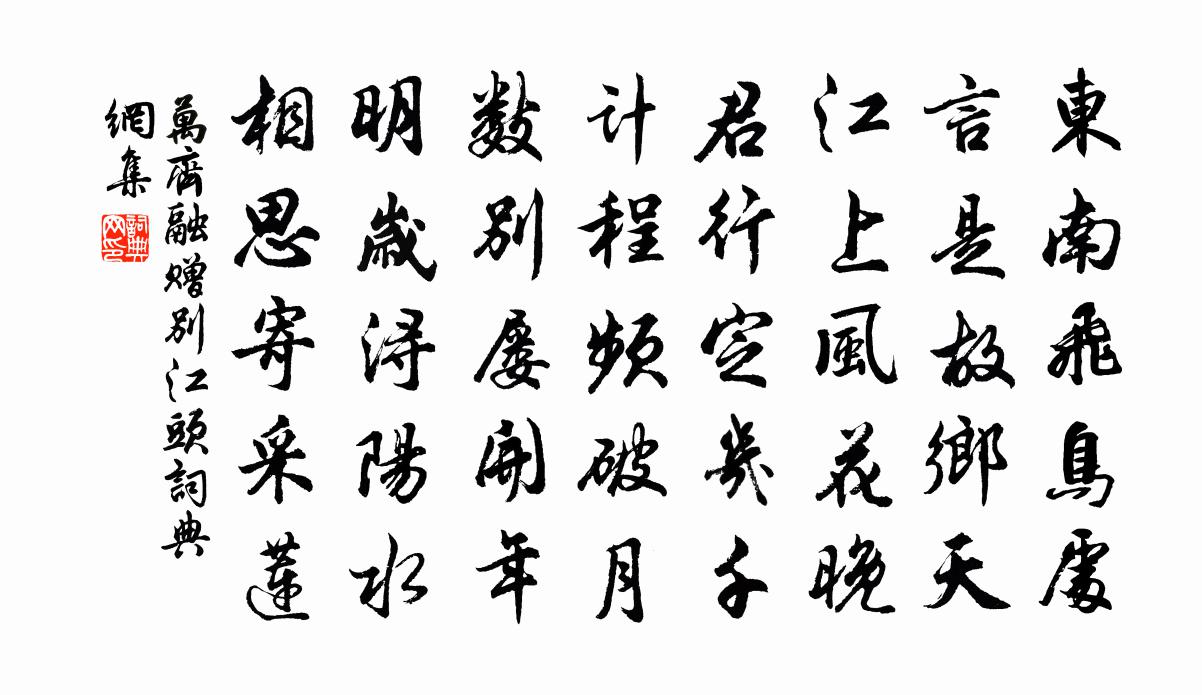 東南飛鳥處
言是故鄉天
江上風花晚
君行定幾千
計程頻破月
数別屡開年
明歲潯陽水
相思寄采蓮
萬齊融贈別江頭詞典
網集
詞典网印